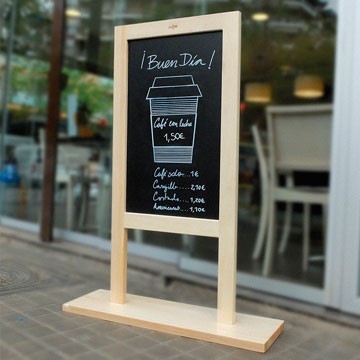 ¡Buen Día!
Café con leche
1,50€
Café solo...1€
Carajillo....2,10€
Cortado....1,20€
1,70€